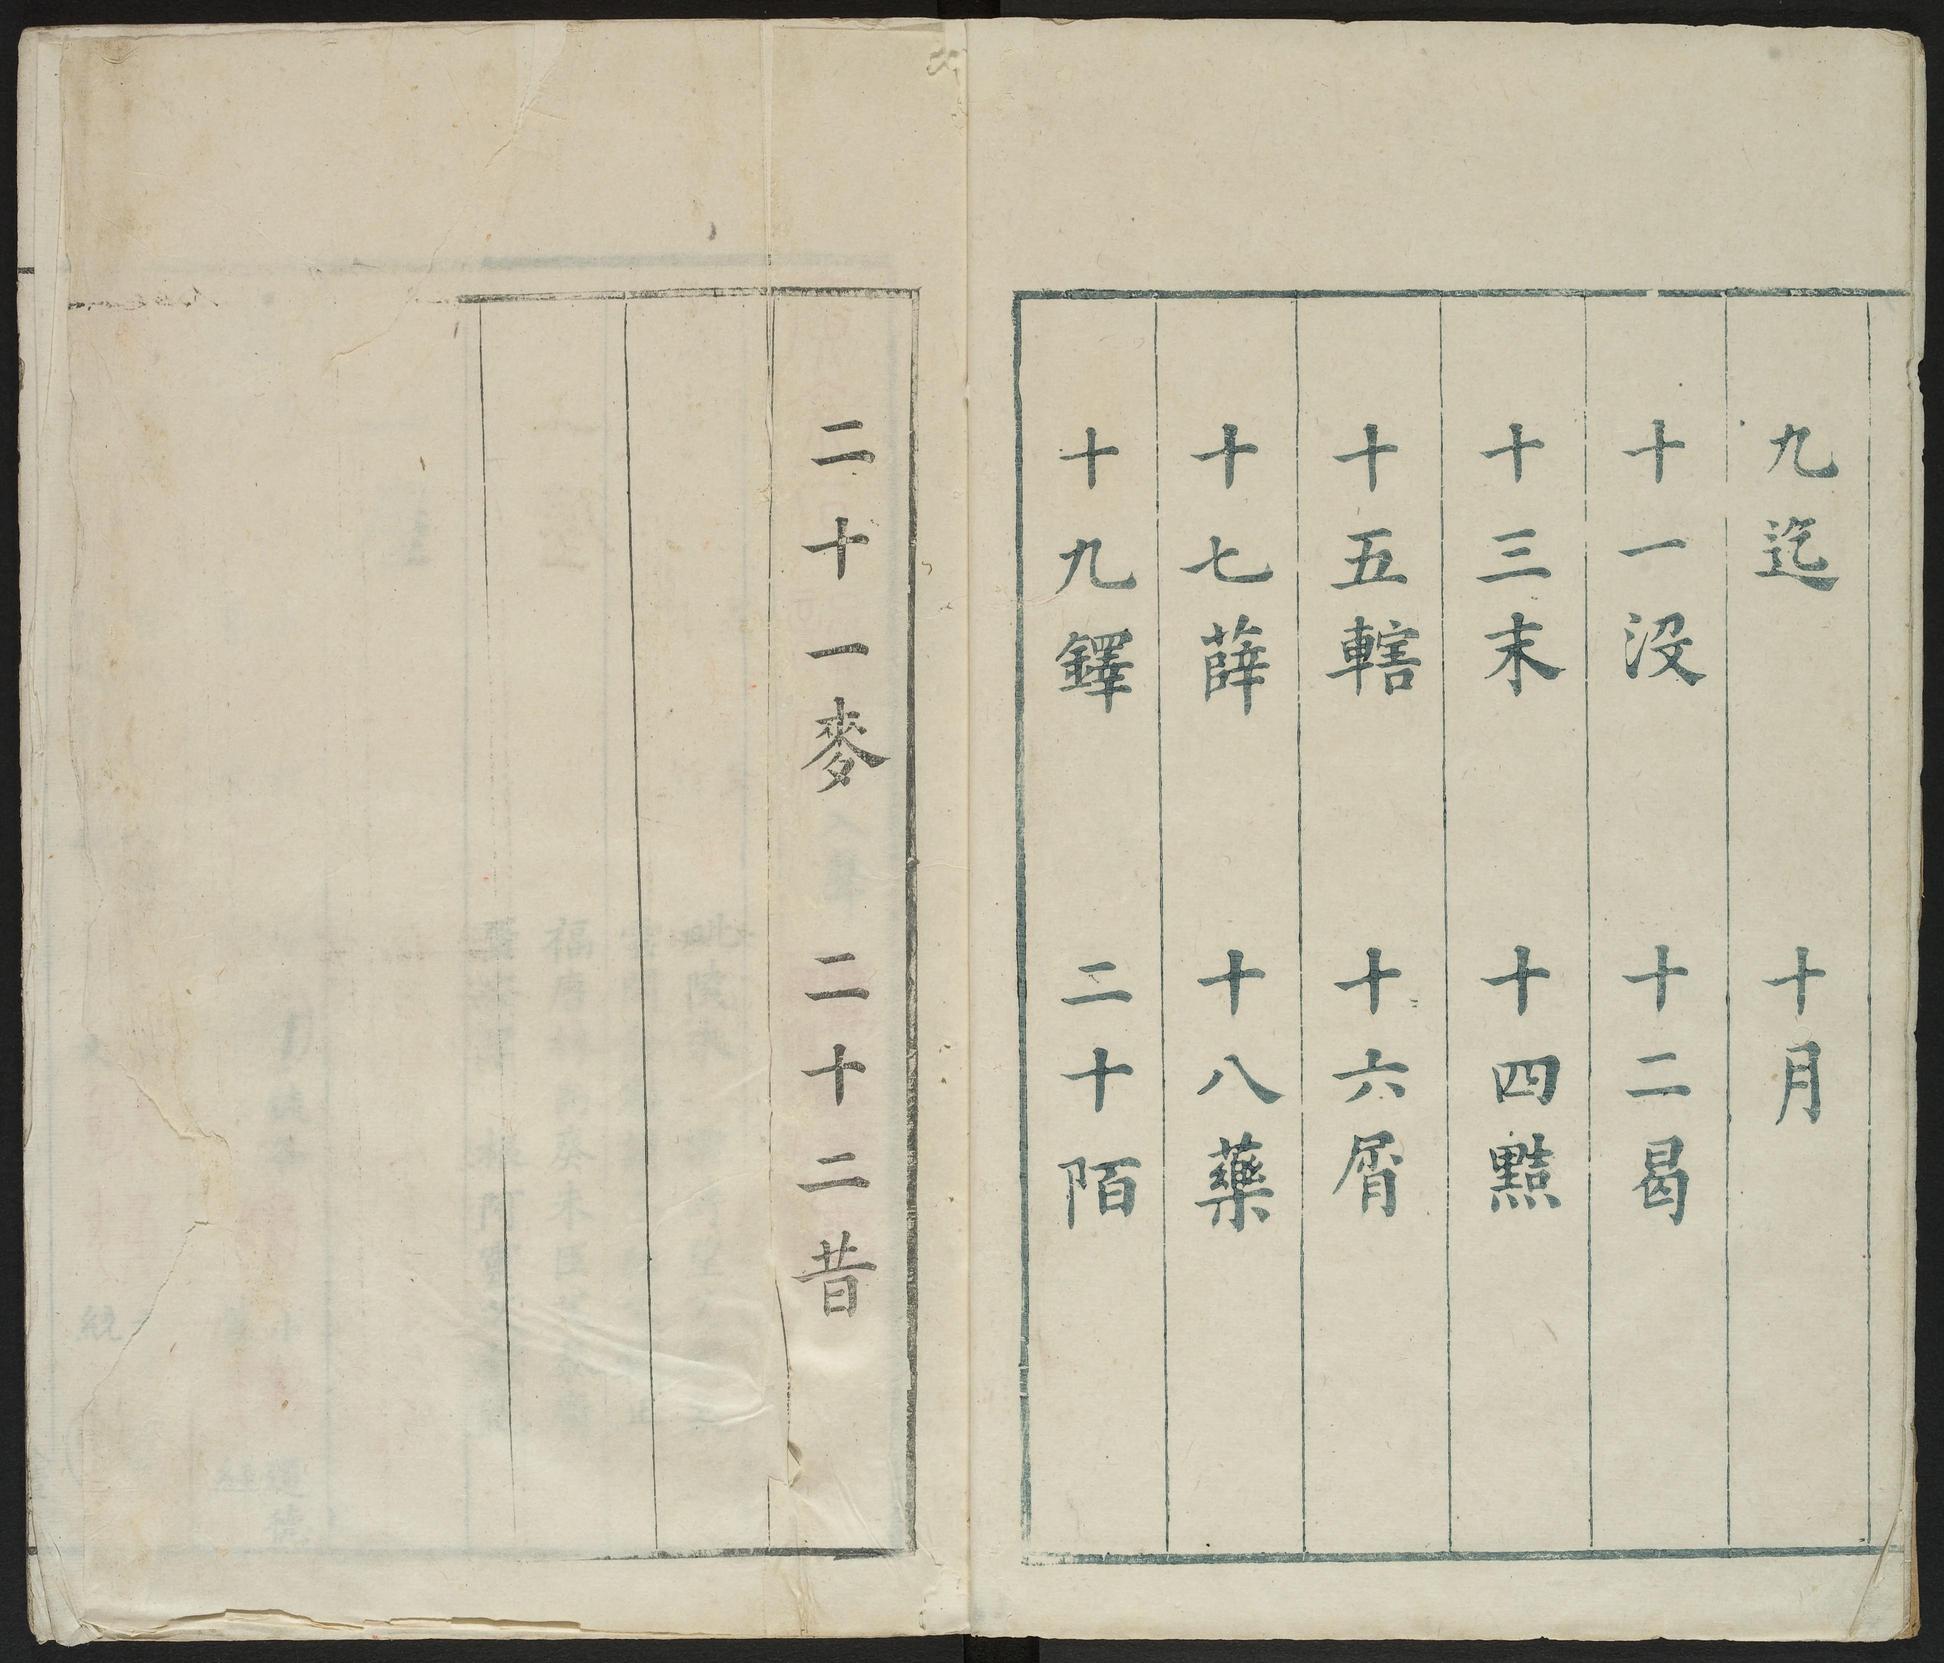 九迄 十月
十一沒 十二曷
十三末 十四黠
十五轄 十六屑
十七薛 十八藥
十九鐸 二十陌
二十一麥 二十二昔